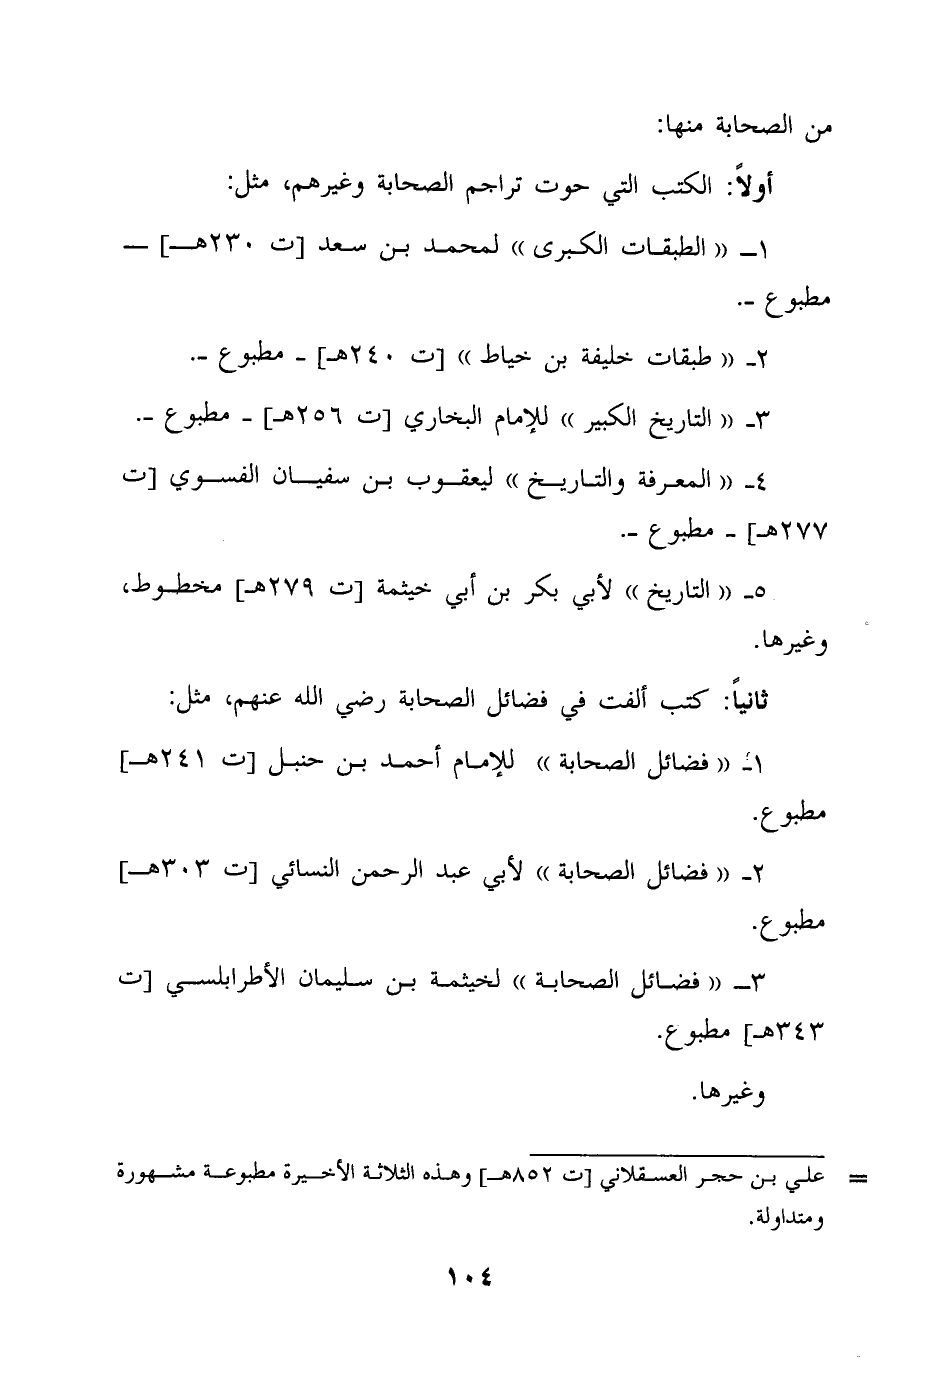 من الصحابة منها:
أولاً: الكتب التي حوت تراجم الصحابة وغيرهم، مثل:
١ــ (( الطبقات الكبرى )) لمحمد بن سعد [ت ٢٣٠هـ] ــ
مطبوع ـ.
٢ـ (( طبقات خليفة بن خياط )) [ت ٢٤٠هـ] ـ مطبوع ـ.
٣ـ (( التاريخ الكبير )) للإمام البخاري [ت ٢٥٦هـ] ـ مطبوع ـ.
٤ـ (( المعرفة والتاريخ )) ليعقوب بن سفيان الفسوي [ت
٢٧٧هـ] ـ مطبوع ـ.
٥ـ (( التاريخ )) لأبي بكر بن أبي خيثمة [ت ٢٧٩هـ] مخطوط،
وغيرها.
ثانياً: كتب ألفت في فضائل الصحابة رضي الله عنهم، مثل:
١ـ (( فضائل الصحابة )) للإمام أحمد بن حنبل [ت ٢٤١هـ]
مطبوع.
٢ـ (( فضائل الصحابة )) لأبي عبد الرحمن النسائي [ت ٣٠٣هـ]
مطبوع.
٣ــ (( فضائل الصحابة )) لخيثمة بن سليمان الأطرابلسي [ت
٣٤٣هـ] مطبوع.
وغيرها.
= علي بن حجر العسقلاني [ت ٨٥٢هـ] وهذه الثلاثة الأخيرة مطبوعة مشهورة
ومتداولة.
١٠٤